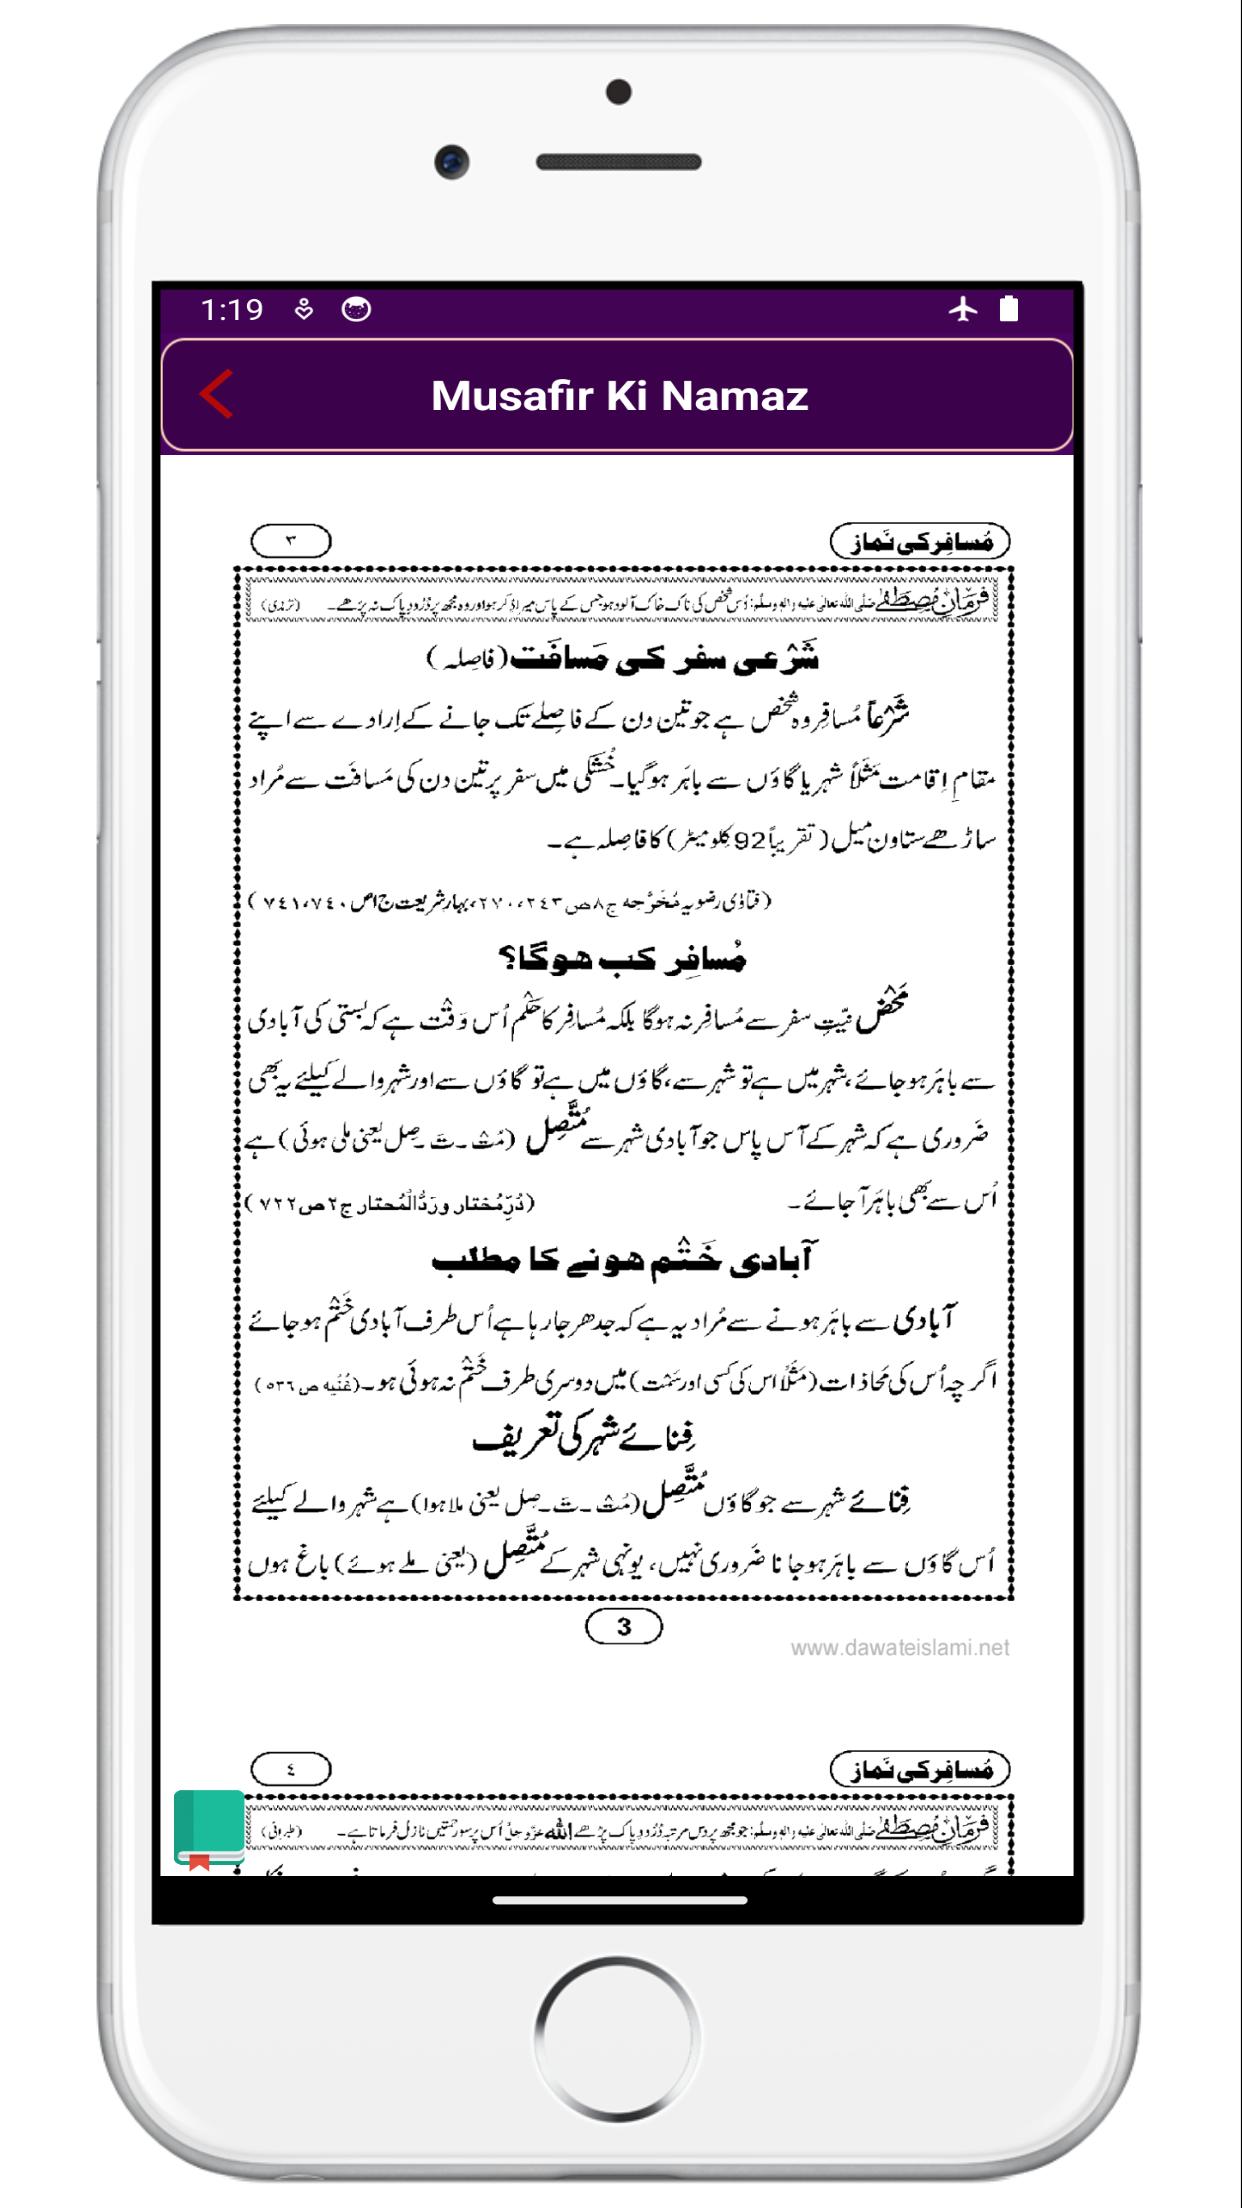 1:19
Musafir Ki Namaz
مُسافِر کی نَماز
٣
فرمانِ مُصطَفٰے صلَّی اللہ تعالٰی علیہ والہٖ وسلَّم: اُس شخص کی ناک خاک آلود ہو جس کے پاس میرا ذِکر ہو اور وہ مجھ پر دُرُودِ پاک نہ پڑھے۔ (ترمذی)
شَرْعی سفر کی مَسافَت (فاصِلہ)
شَرْعاً مُسافِر وہ شخص ہے جو تین دن کے فاصِلے تک جانے کے اِرادے سے اپنے
مقامِ اِقامت مَثَلاً شہر یا گاؤں سے باہَر ہو گیا۔ خُشکی میں سفر پر تین دن کی مَسافَت سے مُراد
ساڑھے ستاون میل (تقریباً 92 کِلو میٹر) کا فاصِلہ ہے۔
(فتاوٰی رضویہ مُخَرَّجہ ج ٨ ص ٢٤٣، ٢٧٠، بہارِ شریعت ج ١ ص ٧٤٠، ٧٤١)
مُسافِر کب ہوگا؟
مَحْض نیّتِ سفر سے مُسافِر نہ ہوگا بلکہ مُسافِر کا حُکْم اُس وَقْت ہے کہ بستی کی آبادی
سے باہَر ہو جائے، شہر میں ہے تو شہر سے، گاؤں میں ہے تو گاؤں سے اور شہر والے کیلئے یہ بھی
ضَروری ہے کہ شہر کے آس پاس جو آبادی شہر سے مُتَّصِل (مُتْ۔تَ۔صِل یعنی ملی ہوئی) ہے
اُس سے بھی باہَر آجائے۔ (دُرِّمُختار ورَدُّالْمُحتار ج ٢ ص ٧٢٢)
آبادی خَتْم ہونے کا مطلب
آبادی سے باہَر ہونے سے مُراد یہ ہے کہ جدھر جا رہا ہے اُس طرف آبادی خَتْم ہو جائے
اگرچِہ اُس کی مُحاذات (مَثَلاً اس کی کسی اور سَمْت) میں دوسری طرف خَتْم نہ ہوئی ہو۔ (غُنْیہ ص ٥٣٦)
فِنائے شہر کی تعریف
فِنائے شہر سے جو گاؤں مُتَّصِل (مُتْ۔تَ۔صِل یعنی ملا ہوا) ہے شہر والے کیلئے
اُس گاؤں سے باہَر ہو جانا ضَروری نہیں، یونہی شہر کے مُتَّصِل (یعنی ملے ہوئے) باغ ہوں
3
www.dawateislami.net
مُسافِر کی نَماز
٤
فرمانِ مُصطَفٰے صلَّی اللہ تعالٰی علیہ والہٖ وسلَّم: جو مجھ پر دس مرتبہ دُرُودِ پاک پڑھے اللہ عزَّوجلَّ اُس پر سو رحمتیں نازِل فرماتا ہے۔ (طبرانی)